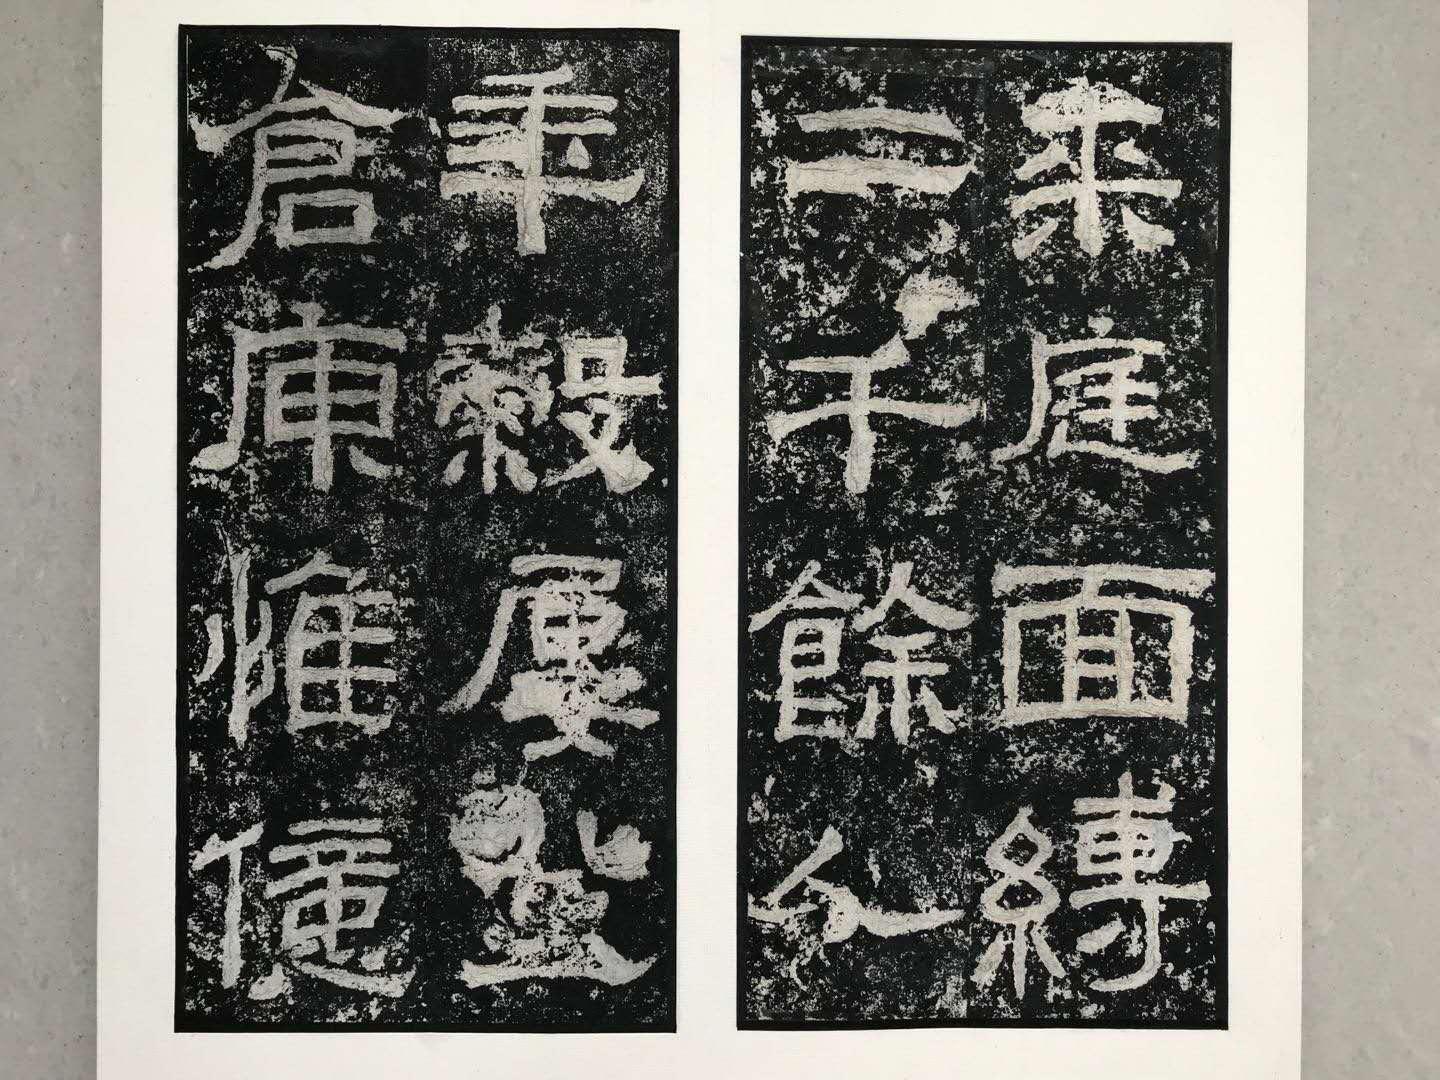 來庭面縛
二千餘人
年穀屢登
倉庾惟億